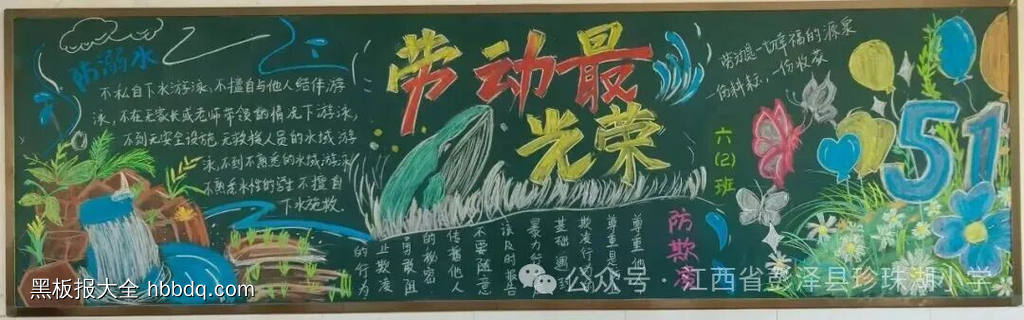 防溺水
不私自下水游泳,不擅自与他人结伴游
泳,不在无家长或老师带领的情况下游泳,
不到无安全设施、无救援人员的水域游
泳,不到不熟悉的水域游泳,
不熟悉水性的学生不擅自
下水施救。
劳动最
光荣
劳动是一切幸福的源泉
一份耕耘,一份收获
六(2)班
51
防欺凌
尊重他
尊重是
欺凌行
基础,遇到
暴力行
该及时报告
不要随意
传播他人
的秘密
勇敢阻
止欺凌
的行为
黑板报大全 hbbdq.com
公众号·江西省彭泽县珍珠湖小学